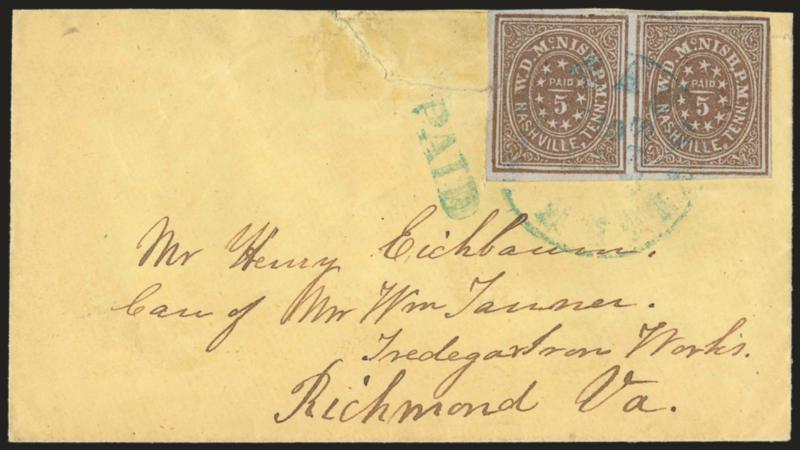 W.D. McNISH, P.M.
PAID
5
NASHVILLE, TENN.
W.D. McNISH, P.M.
PAID
5
NASHVILLE, TENN.
PAID
Mr Henry Eichbaum.
Care of Mr Wm Tanner.
Tredegar Iron Works.
Richmond Va.